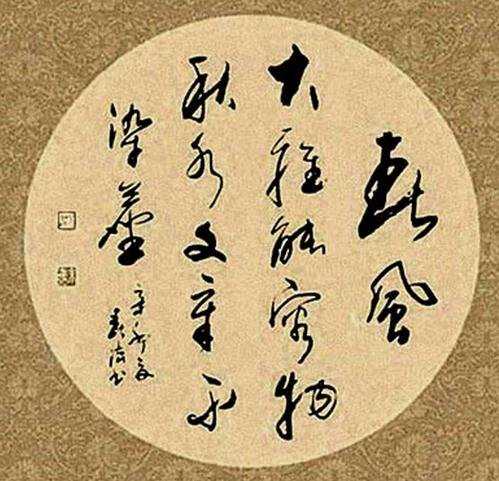 春風
大雅能容物
秋水文章不
染塵